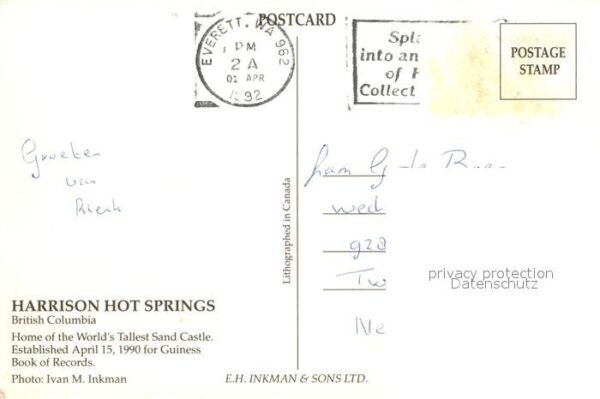 POSTCARD
EVERETT, WA 982
PM
2 A
01 APR
1992
Spl
into an
of
Collect
POSTAGE
STAMP
Groeten
van
fam G
wed
Tw
Ne
Lithographed in Canada
privacy protection
Datenschutz
HARRISON HOT SPRINGS
British Columbia
Home of the World's Tallest Sand Castle.
Established April 15, 1990 for Guiness
Book of Records.
Photo: Ivan M. Inkman
E.H. INKMAN & SONS LTD.